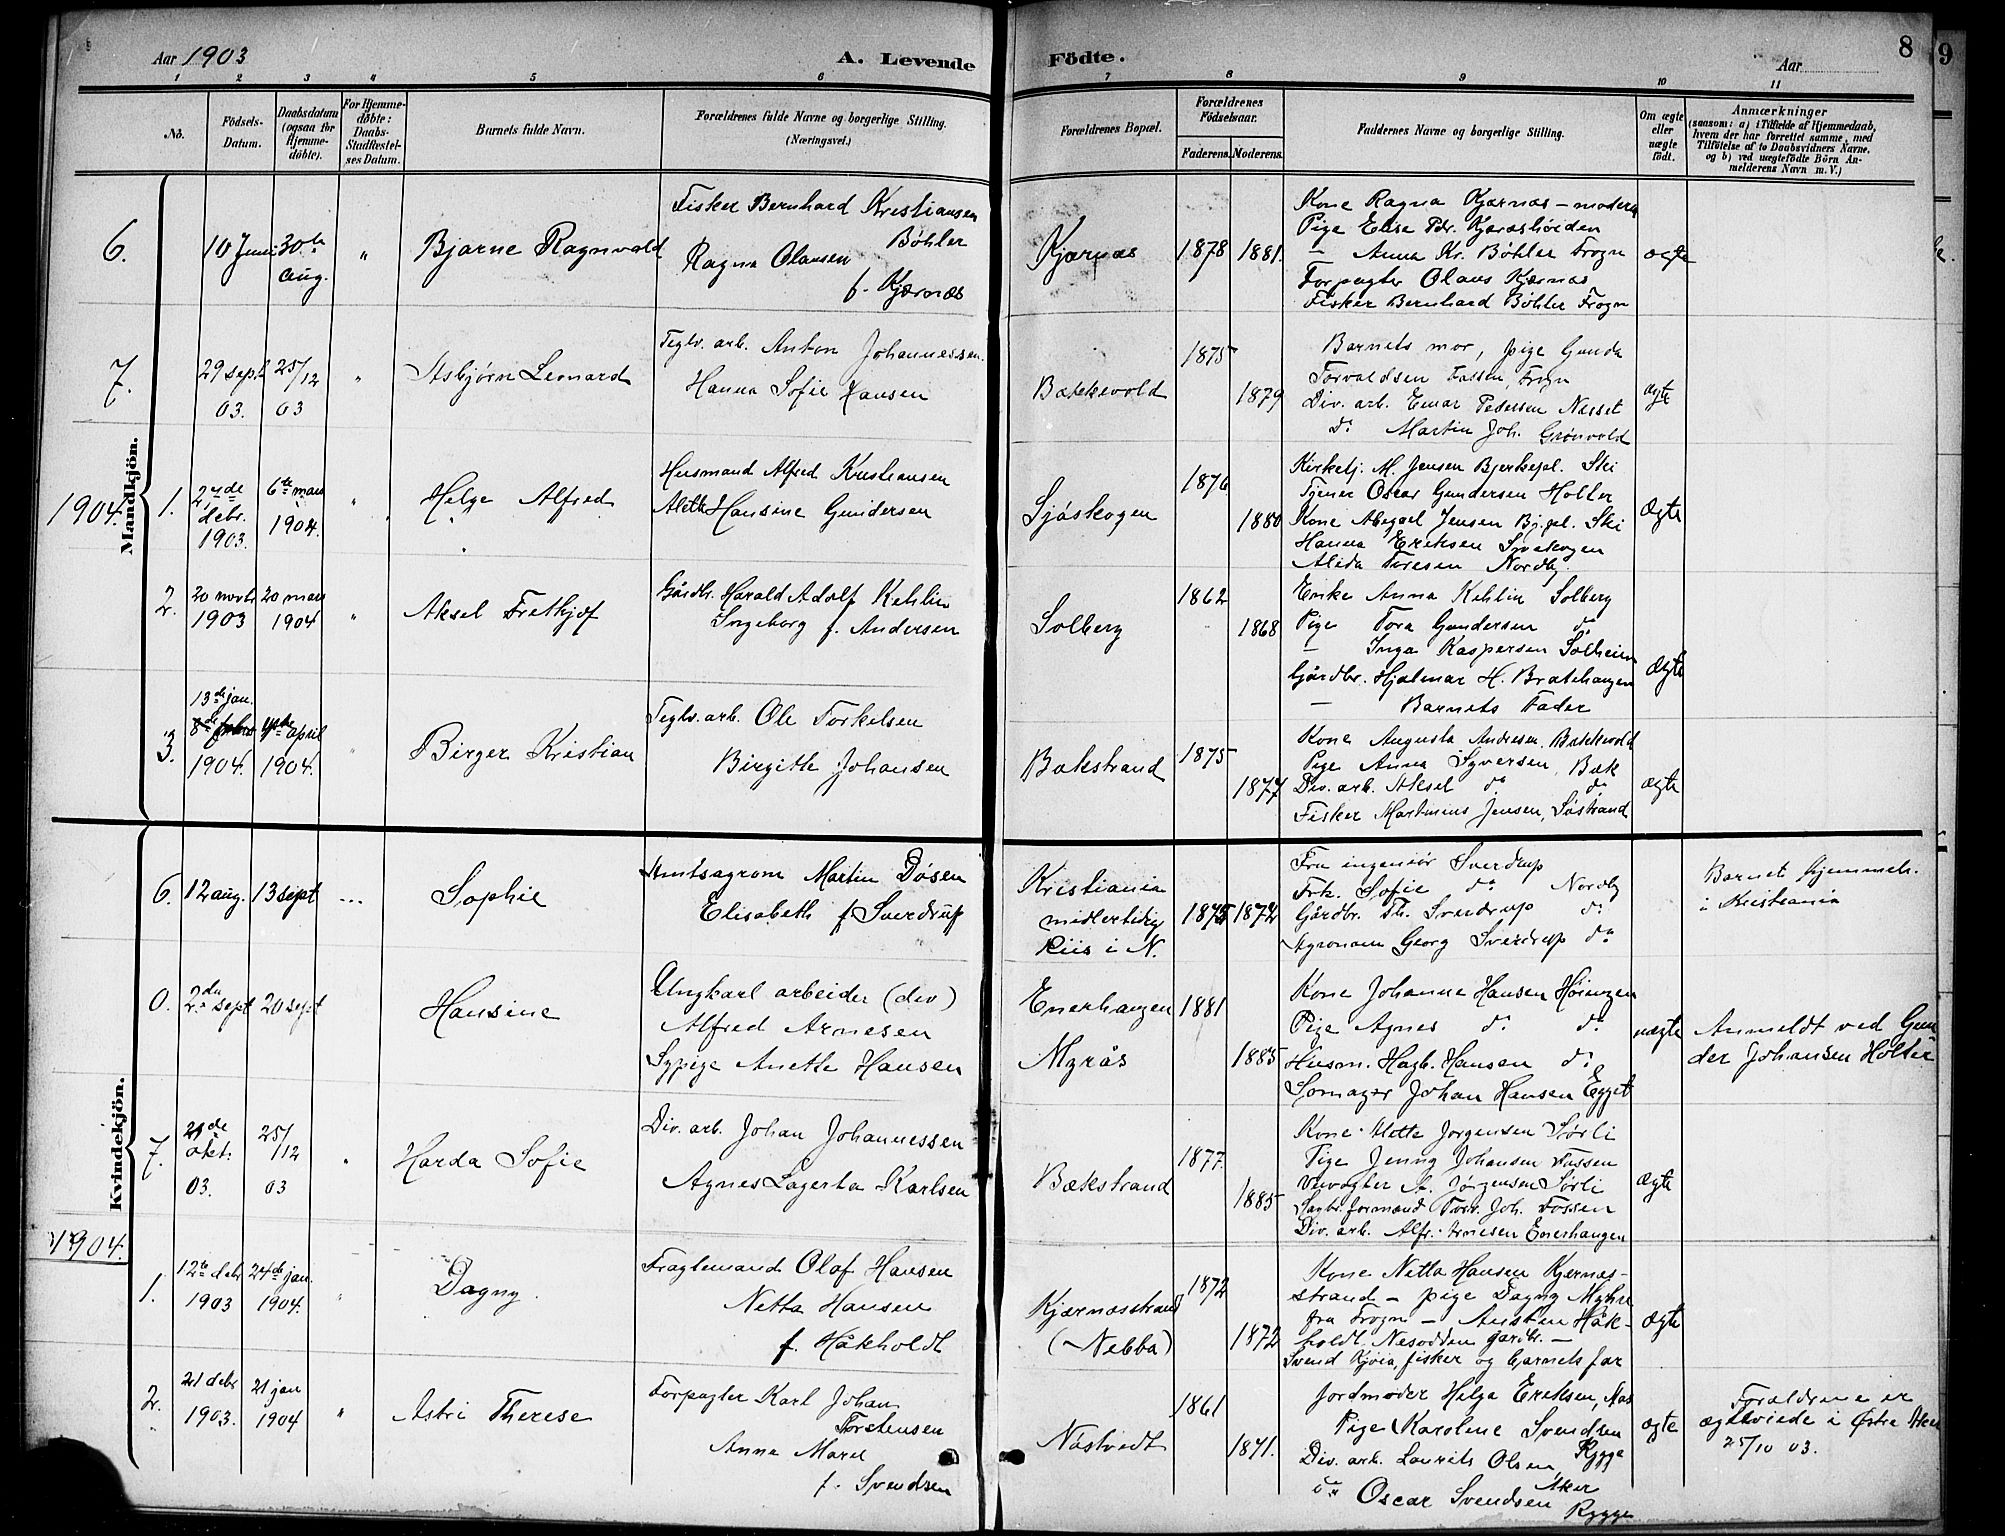 Aar 1903
A. Levende
Födte.
Aar
8
9
1 2 3 4 5 6 7 8 9 10 11
No.
Födsels-Datum.
Daabsdatum (ogsaa for Hjemme-döbte).
For Hjemme-döbte: Daabs-Stadfæstel-ses Datum.
Barnets fulde Navn.
Forældrenes fulde Navne og borgerlige Stilling.
(Næringsvei.)
Forældrenes Bopæl.
Forældrenes Födselsaar.
Faderens. Moderens.
Faddernes Navne og borgerlige Stilling.
Om ægte eller uægte födt.
Anmærkninger
(saasom: a) i Tilfælde af Hjemmedaab,
hvem der har forrettet samme, med
Tilföielse af to Daabsvidners Navne.
og b) ved uægtefödte Börn An-
melderens Navn m. V.)
Mandkjön.
6. 10 Juni 30te aug. " Bjarne Ragnvald
Fisker Bernhard Kristiansen
Böhler
Ragna Olausen
f. Kjærnæs
Kjærnæs 1878 1881.
Kone Ragna Kjærnæs – moderen
Pige Elise
– Anna Kr. Böhler Frogn
Forpagter Olaus Kjærnæs
Fisker Bernhard Böhler Frogn
ægte
7. 29 sept 03. 25/12 03 " Asbjørn Leonard
Teglv. arb. Anton Johannessen.
Hanna Sofie Hansen
Bækkevold 1875 1879
Barnets mor, pige Gunda
Torvaldsen Fossen, Frogn
Div. arb. Einar Pedersen Næsset
do Martin Joh. Grönvold
ægte
1904. 1. 2den debr. 1903. 6te mars 1904. " Helge Alfred
Husmand Alfred Kristiansen
Aleth Hansine Gundersen
Sjöskogen 1876 1880
Kirketj. M. Jensen Bjerkepl. Ski
Tjener Oscar Gundersen Holter
Kone Abigael Jensen Bj.pl. Ski
Hanna Eriksen
Alida Toresen Nordby.
Ægte
2. 20 novbr 1903 20 mars 1904 " Aksel Frethjof
Gårdbr. Harald Adolf Kehlin
Ingeborg f. Andersen
Solberg 1862 1868
Enke Anna Kehlin Solberg
Pige Tora Gundersen do
– Inga Kaspersen Solheim
Gårdbr. Hjalmar H. Bråtehaugen
– Barnets Fader
Ægte
3. 13de jan. 1904. 4de april 1904. " Birger Kristian
Teglv. arb. Ole Torkelsen
Birgitte Johansen
Bækstrand 1875 1877
Kone Augusta Andresen, Bækkevold
Pige Anna Syversen, Bæk
Div. arb. Aksel do do
Fisker Martinius Jensen, Söstrand
ægte
Kvindekjön.
6. 12 aug. 13 sept ... Sophie
Amtsagronom Martin Dösen
Elisabeth f Sverdrup
Kristiania
midlertidig
Riis i N.
1875 1872
Fru ingeniör Sverdrup
Frk. Sofie do Nordby
Gårdbr. Th. Sverdrup do
Agronom Georg Sverdrup do
Barnet hjemmeh.
i Kristiania
0. 2den sept 20 sept Hansine
Ungkarl arbeider (div)
Alfred Arnesen
Sypige Anette Hansen
Enerhaugen 1881
Myrås 1885
Kone Johanne Hansen Höiengen
Pige Agnes do do
Husm. Hagb. Hansen do
Skomager Johan Hansen Egget
uægte
Anmeldt ved Gun
der Johansen Holter
7. 21de okt. 03. 25/12 03 " Harda Sofie
Div. arb. Johan Johannessen
Agnes Lagerta Karlsen
Bækstrand 1877. 1885
Kone Mette Jorgensen Sörli
Pige Jenny Johansen Fossen
A. Jörgensen Sörli
Sagbr. formand Torv. Joh. Fossen
Div. arb. Alfr. Arnesen Enerhaugen
ægte
1904.
1. 12te debr 1903 24de jan. 1904. " Dagny.
Fragtemand Olaf Hansen
Netta Hansen
f. Håkholdt
Kjærnæsstrand
(Nebba)
1872 1872
Kone Netta Hansen Kjærnæs-
strand – pige Dagny Myhre
fra Frogn – Austen Håk-
holdt. Nesodden gardbr. –
Svend Kjöia, fisker og barnets far
Ægte
2. 21 debr 1903. 21 jan 1904 " Astri Therese
Forpagter Karl Johan
Torstensen
Anna Marie
f. Svendsen
Nöstvedt 1861 1871.
Jordmoder Helga Eriksen, Aas
Pige Karoline Svendsen
Rygge
Div. arb. Laurits Olsen
Aker
do Oscar Svendsen
Rygge
ægte
Forældrene er
ægteviede i Østre Aker
25/10 03.